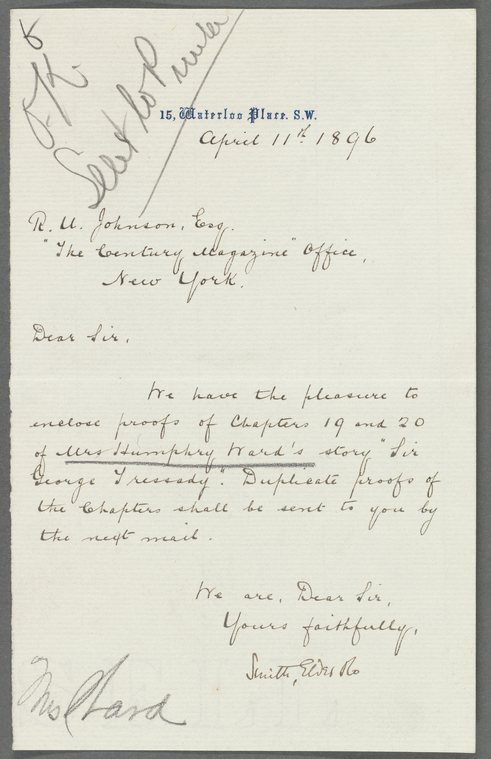 O.K.
Sent to Printer
15, Waterloo Place. S.W.
April 11th 1896
R. U. Johnson, Esq.
"The Century Magazine" Office,
New York.
Dear Sir,
We have the pleasure to
enclose proofs of Chapters 19 and 20
of Mrs Humphry Ward's story "Sir
George Tressady". Duplicate proofs of
the Chapters shall be sent to you by
the next mail.
We are, Dear Sir,
Yours faithfully,
Smith, Elder & Co
Mrs Ward